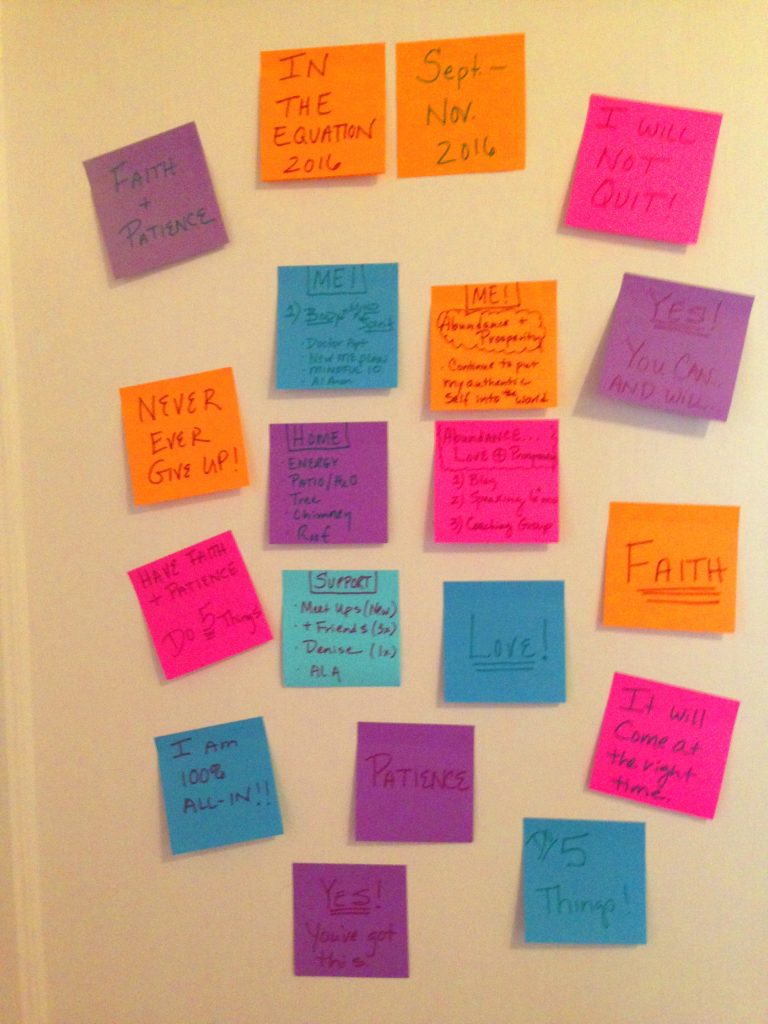 IN
THE
EQUATION
2016
Sept.-
Nov.
2016
FAITH
+
PATIENCE
I WILL
NOT
QUIT!
ME!
1) BODY+
Spirit
· Doctor Apt
· New ME plan
· MINDFUL 10
· Al Anon
ME!
Abundance +
Prosperity
· Continue to put
my authentic
self into the world
YES!
YOU CAN...
AND WILL...
NEVER
EVER
GIVE UP!
HOME
· ENERGY
· PATIO/H2O
· Tree
· Chimney
· Roof
ABUNDANCE...
LOVE + Prosperity
1) Blog
2) Speaking
3) Coaching Group
HAVE FAITH
+ PATIENCE
DO 5 Things
SUPPORT
· Meet Ups (New)
· + Friends (3x)
· Denise (1x)
· ALA
LOVE!
FAITH
I Am
100%
ALL-IN!!
PATIENCE
It will
Come at
the right
time.
YES!
You've got
this
5
Things!